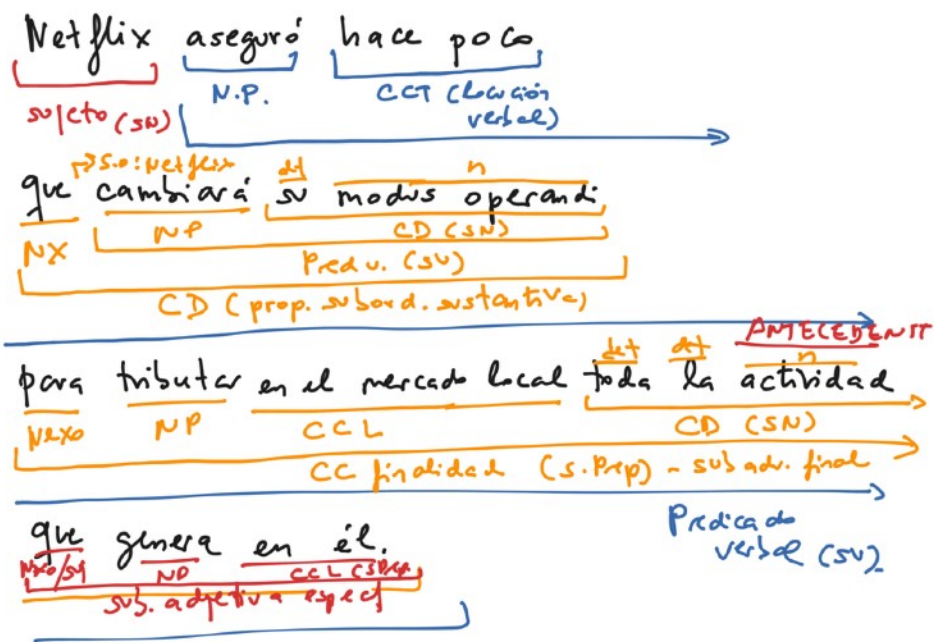 Netflix aseguró hace poco
N.P. CCT (locución
sujeto (SN) verbal)
S.O: Netflix det n
que cambiará su modus operandi
NX NP CD (SN)
Pred v. (SV)
CD (prop. subord. sustantiva)
ANTECEDENTE
det det n
para tributar en el mercado local toda la actividad
Nexo NP CCL CD (SN)
CC finalidad (S.Prep) - sub adv. final
Predicado
que genera en él. verbal (SV)
NP CCL (SPrep)
sub. adjetiva especf